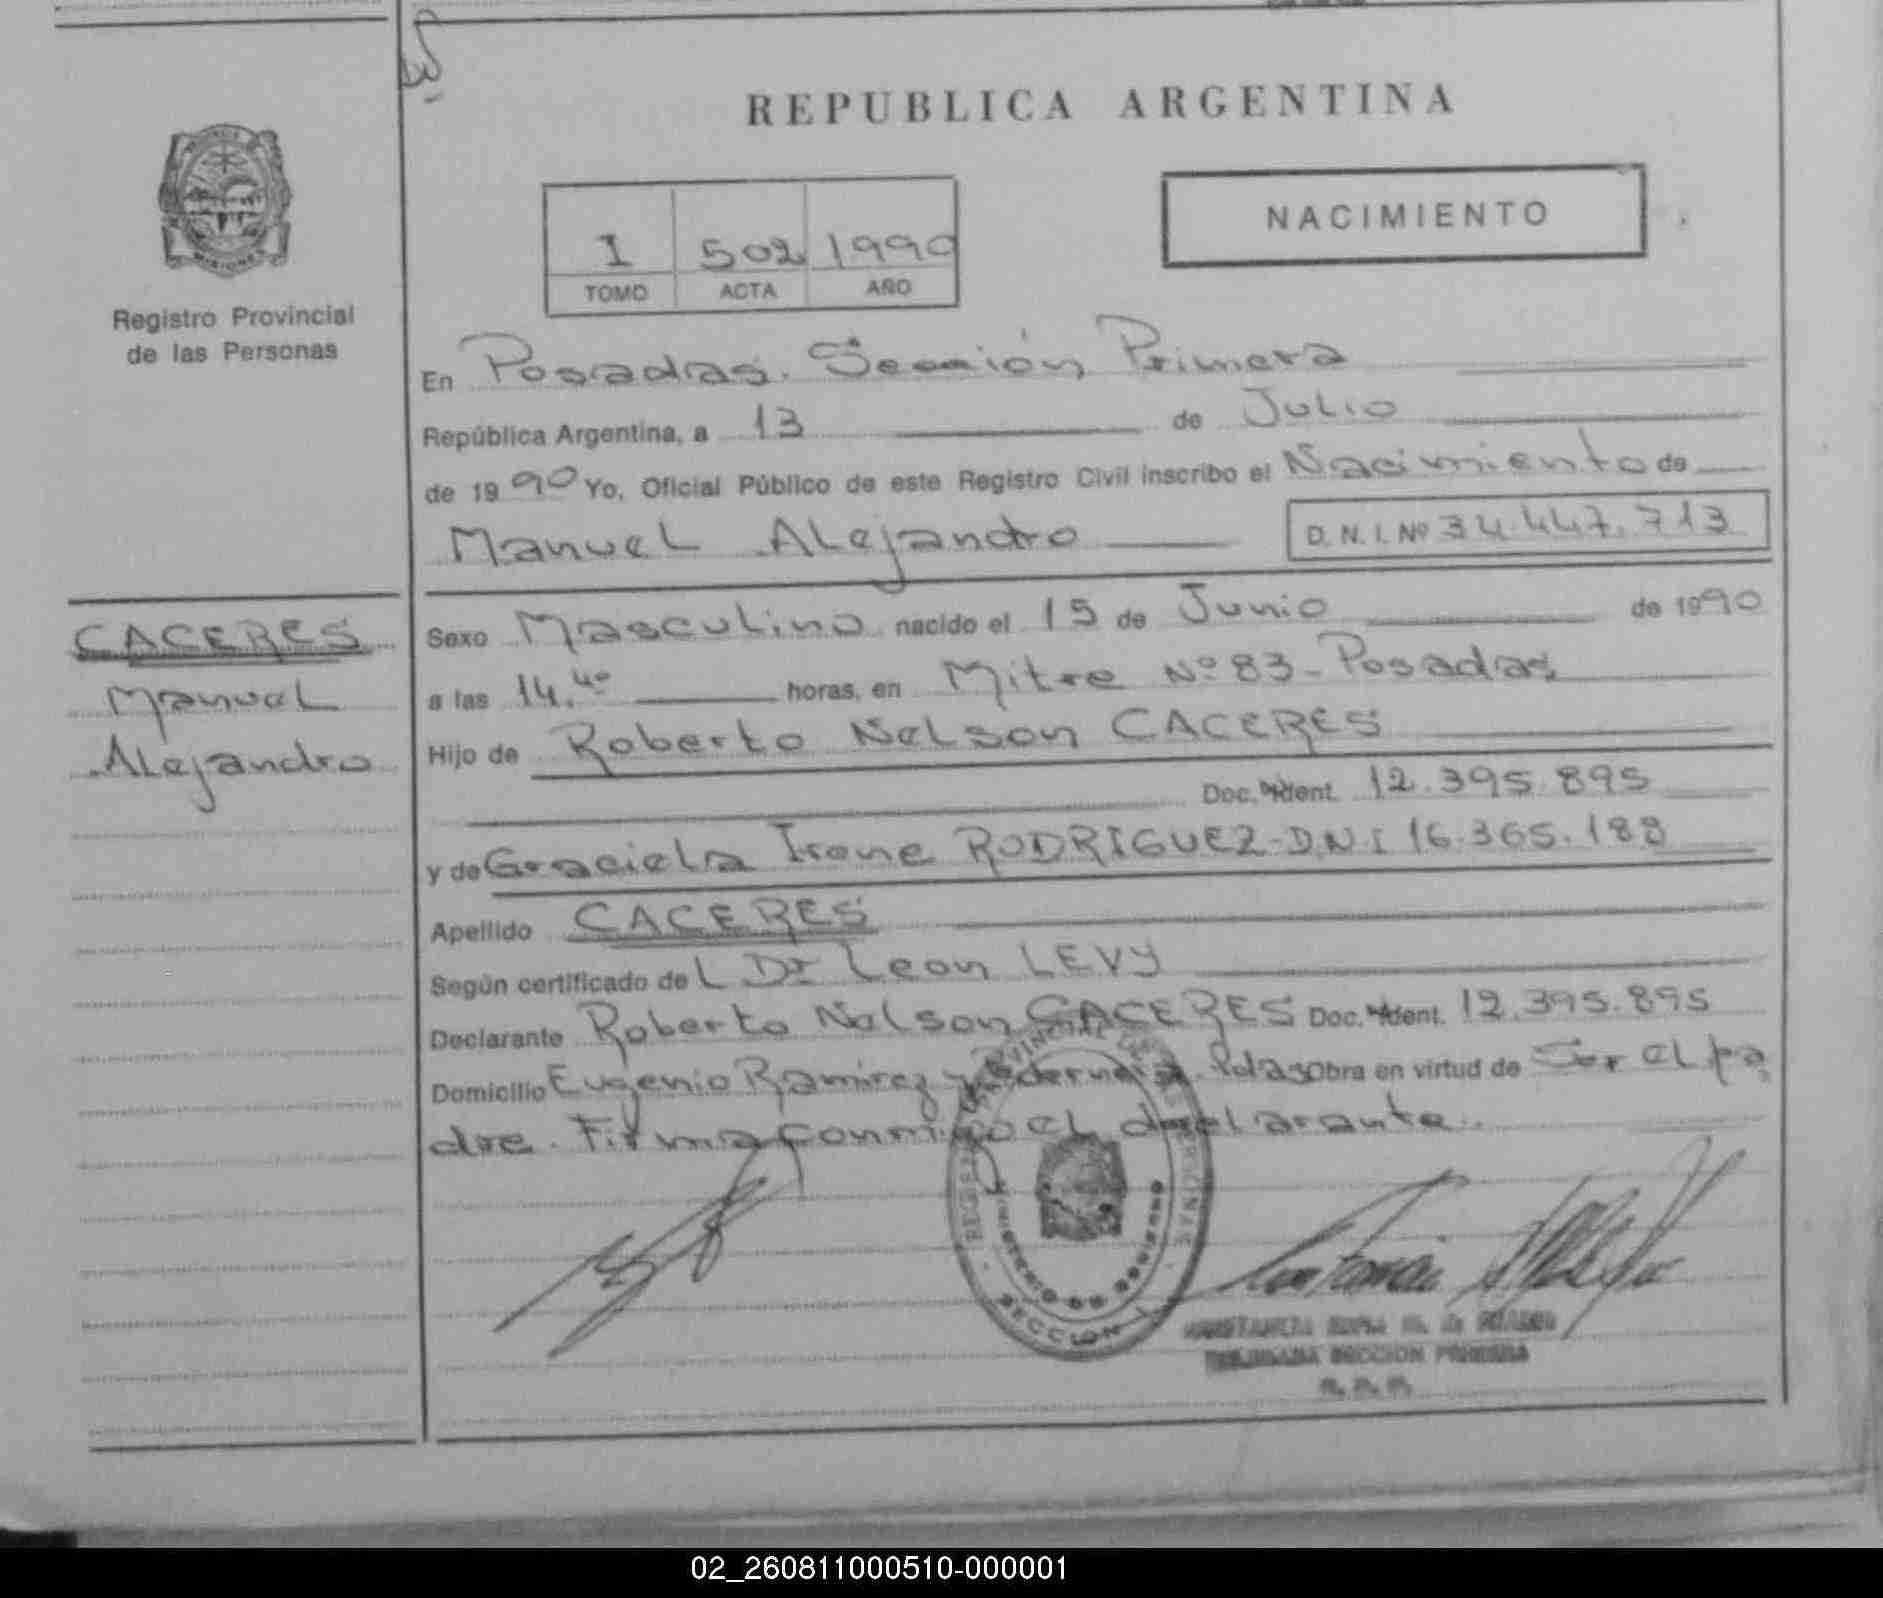 REPUBLICA ARGENTINA
MISIONES
Registro Provincial
de las Personas
NACIMIENTO
I 502 1990
TOMO ACTA AÑO
En Posadas. Sección Primera
República Argentina, a 13 de Julio
de 1990 Yo, Oficial Público de este Registro Civil inscribo el Nacimiento de
Manuel Alejandro D.N.I. Nº 34.447.713
CACERES
Manuel
Alejandro
Sexo Masculino nacido el 15 de Junio de 1990
a las 14,40 horas, en Mitre Nº 83 - Posadas
Hijo de Roberto Nelson CACERES
Doc. Ident. 12.395.895
y de Graciela Irene RODRIGUEZ - D.N.I 16.365.188
Apellido CACERES
Según certificado de L Dr Leon LEVY
Declarante Roberto Nelson CACERES Doc. Ident. 12.395.895
Domicilio Eugenio Ramirez y Obra en virtud de Ser el pa
dre. Firma conmigo el declarante.
SECCION
SECCION PRIMERA
02_260811000510-000001